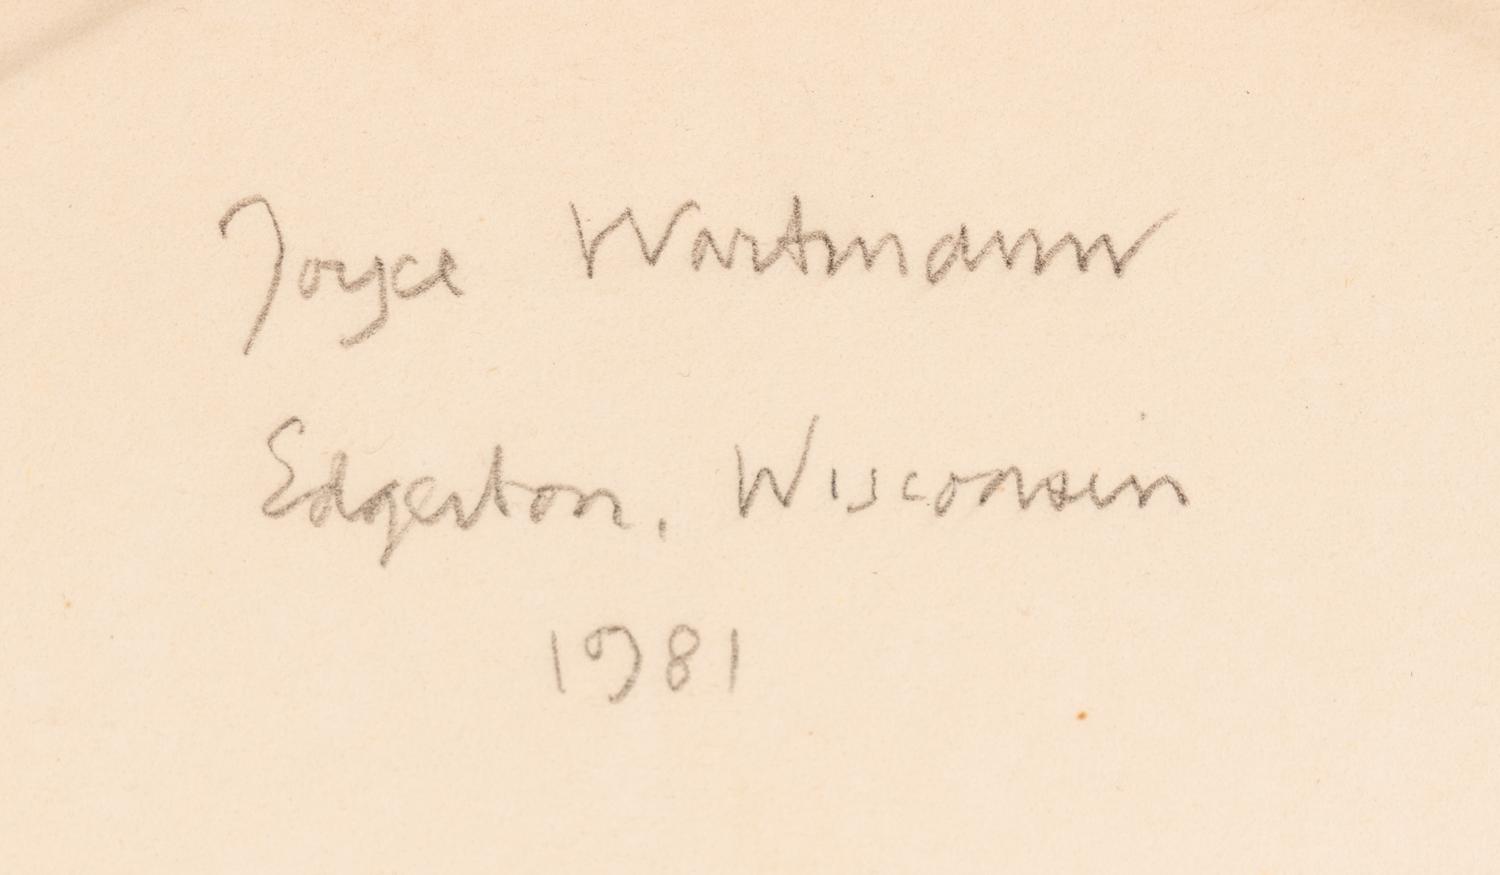 Joyce Wartmann
Edgerton, Wisconsin
1981